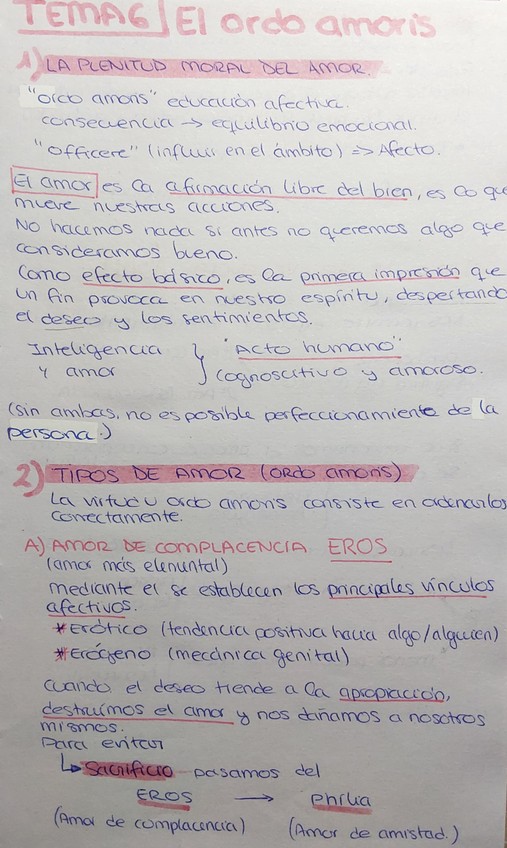 TEMA6 | El ordo amoris
1) LA PLENITUD MORAL DEL AMOR.
"ordo amoris" educación afectiva.
consecuencia → equilibrio emocional.
"Officere" (influir en el ámbito) => Afecto.
El amor es la afirmación libre del bien, es lo que
mueve nuestras acciones.
No hacemos nada si antes no queremos algo que
consideramos bueno.
Como efecto básico, es la primera impresión que
un fin provoca en nuestro espíritu, despertando
el deseo y los sentimientos.
Inteligencia } "Acto humano"
y amor } cognoscitivo y amoroso.
(sin ambas, no es posible perfeccionamiento de la
persona.)
2) TIPOS DE AMOR (ordo amoris)
La virtud u ordo amoris consiste en ordenarlos
correctamente.
A) AMOR DE COMPLACENCIA EROS
(amor más elemental)
mediante el se establecen los principales vínculos
afectivos.
*Erótico (tendencia positiva hacia algo/alguien)
*Erógeno (mecánica genital)
cuando el deseo tiende a la apropiación,
destruimos el amor y nos dañamos a nosotros
mismos.
Para evitar
↳ Sacrificio pasamos del
EROS → Philia
(Amor de complacencia) (Amor de amistad.)